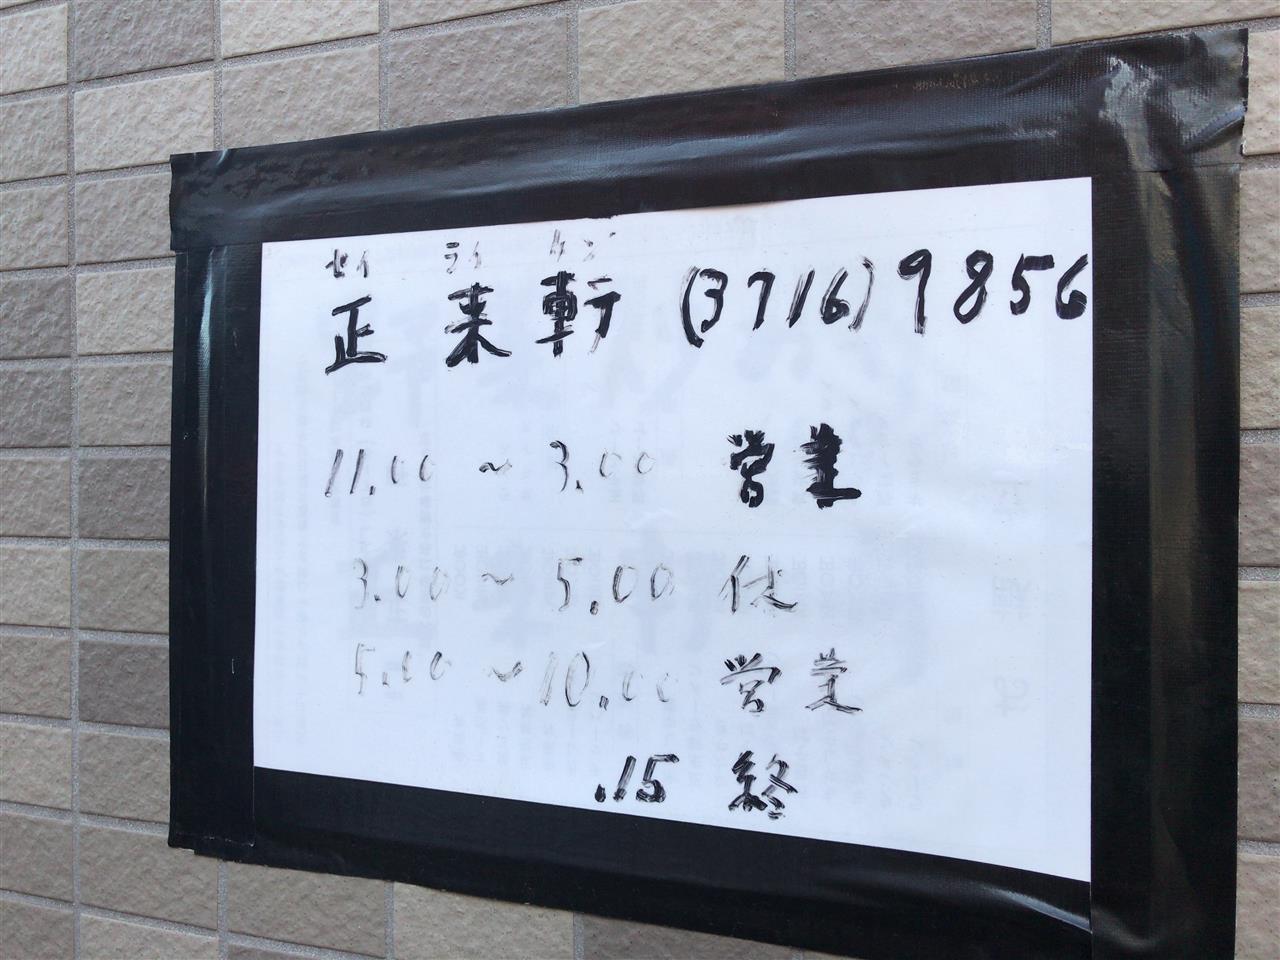 セイ ライ ケン
正来軒 (3716) 9856
11.00 ~ 3.00 営業
3.00 ~ 5.00 休
5.00 ~ 10.00 営業
.15 終